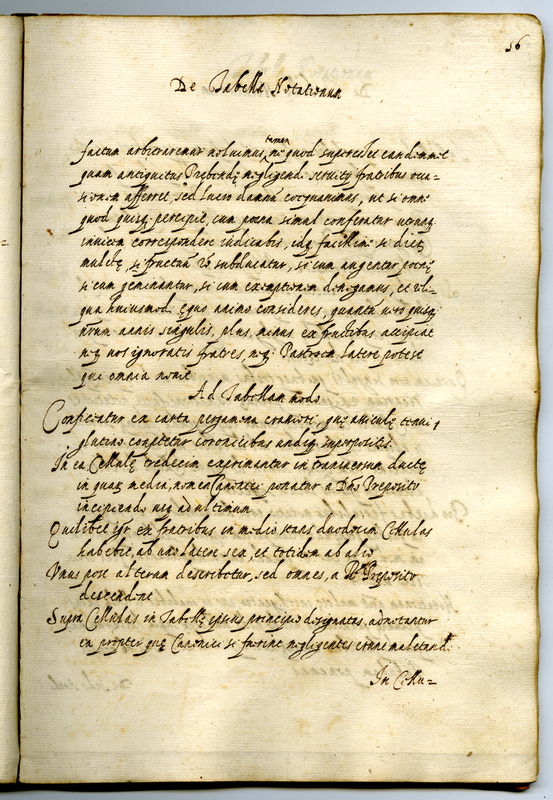 56
De Tabella Notationum
factum arbitraremur noluimus tamen, ne quod supersedet eandemmet
quam antiquitus Prebendę negligendi seruitų fratibus occa=
sionem afferret, sed lucro damnũ coęquauimus, ut si omne
quod quisq; percipit, cum poena simul conferatur utrunq;
inuicem correspondere iudicabis, idq; facillime si dietę
mulctę, si fructum
subducatur, si cum augentur poenę
si cum geminantur, si cum exemptionem denegamus, et reli=
qua huiusmodi ęquo animo consideres, quantũ uero quisq;
nrum annis singulis, plus, minus ex fructibus accipiat
neq; uos ignoratis fratres, neq; Pastorem latere potest
qui omnia nouit
Ad Tabellam modo
Conficiatur ex carta pergamena crassiori, quę assiculę tenui
glutino coaptetur coronicibus undiq; superpositis.
In ea Cellulę tredecim exprimantur in transuersum ductę
in quaꝝ media, nomen Canonici ponatur a Dno Preposito
incipiendo usq; ad ultimum
Quilibet igr ex fratribus in medio stans duodecim Cellulas
habebit, ab uno latere sex, et totidem ab alio
Vnus post alterum describetur, sed omnes, a Rdo Preposito
descendent
Supra Cellulas in Tabellę ipsius principio designatas, adnotantur
ea propter quę Canonici si fuerint negligentes erunt mulctandi
In Cellu=